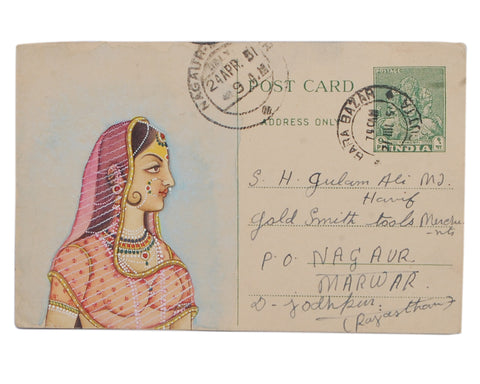 NAGAUR
24 APR. 51
9 A.M.
POST CARD
ADDRESS ONLY
POSTAGE
INDIA
BARA BAZAR
S. H. Gulam Ali MD.
Hanif
Gold Smith tools Mercha
-nts
P.O. NAGAUR.
MARWAR.
D- Jodhpur.
(Rajasthan)